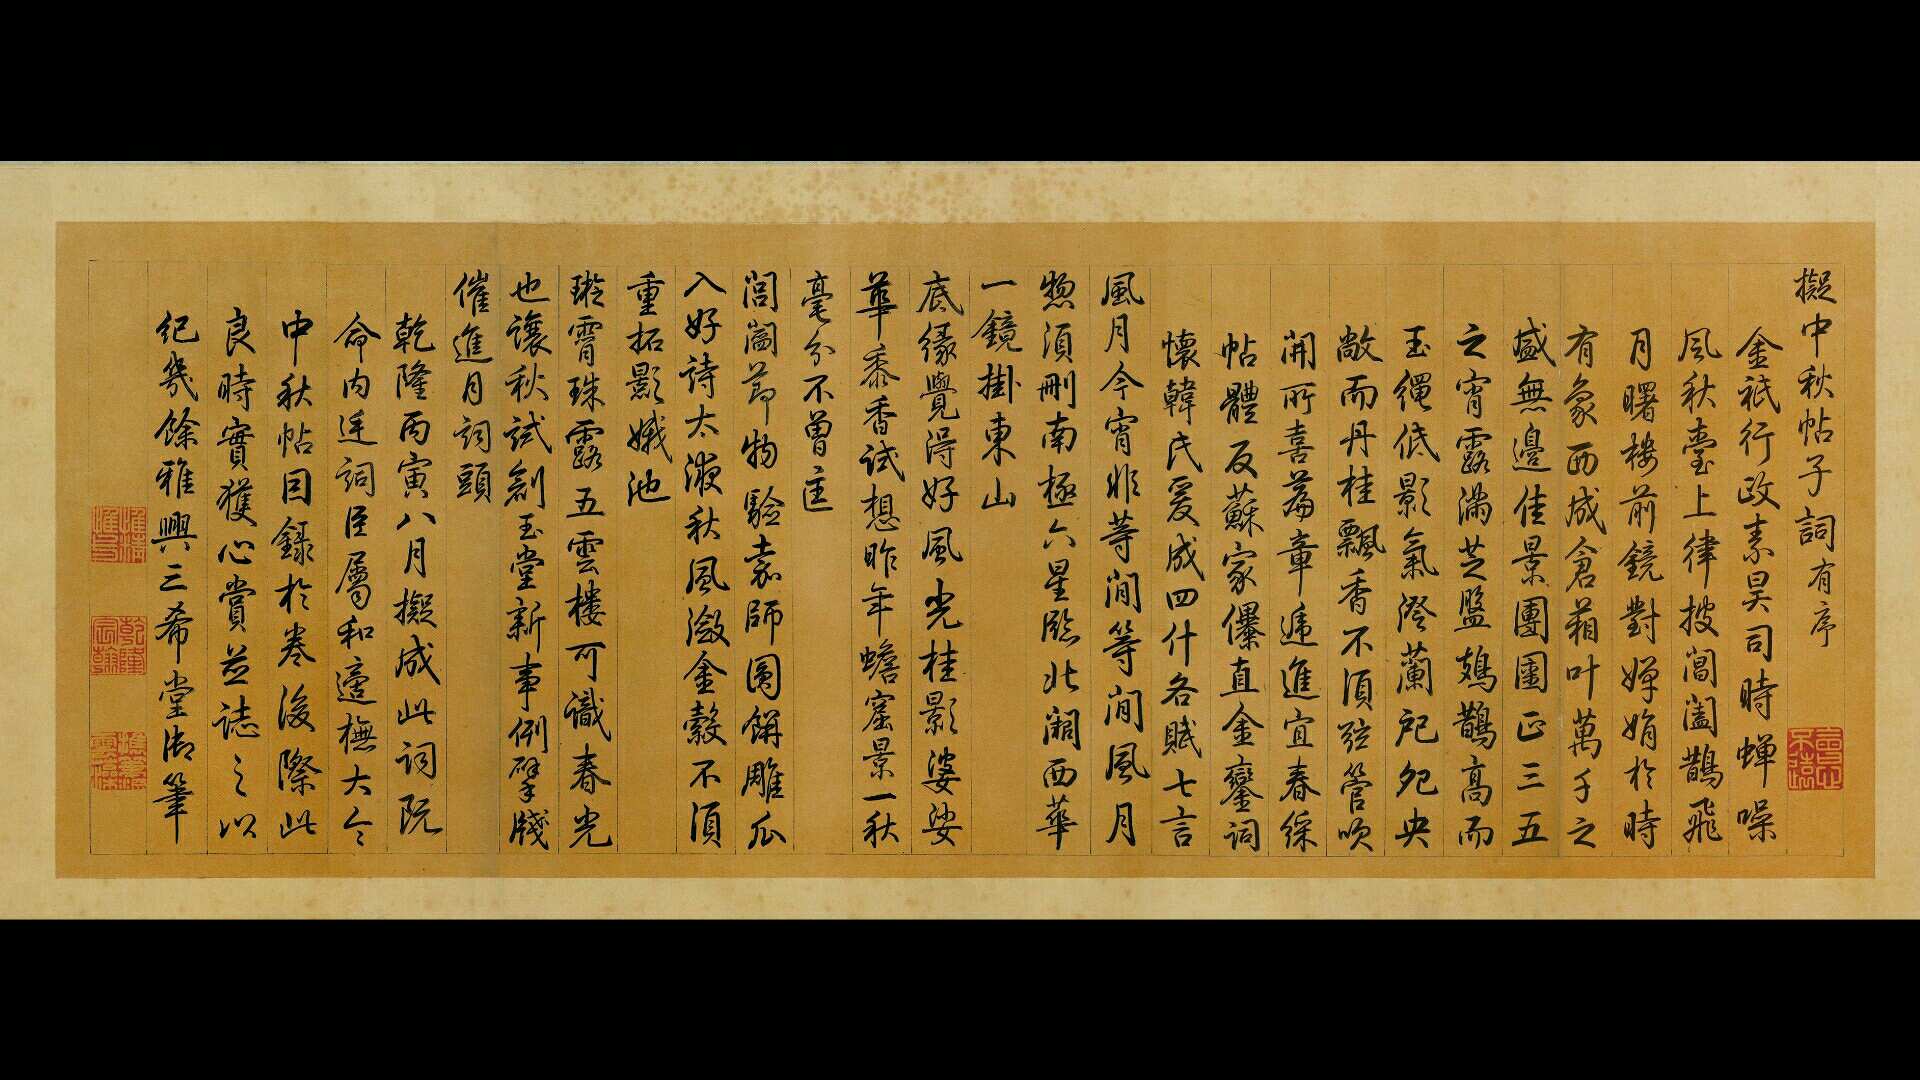 擬中秋帖子詞有序
金祇行政素昊司時蟬噪
風秋臺上律披閶闔鵲飛
月曙樓前鏡對嬋娟於時
有象西成倉箱叶萬千之
盛無邊佳景團圞正三五
之宵露滿芝盤鳷鵲高而
玉繩低影氣澄蘭戺兔央
敞而丹桂飄香不須弦管吹
開所喜萹章遞進宜春綵
帖體反蘇家儤直金鑾詞
懷韓氏爰成四什各賦七言
風月今宵非等閒等閒風月
惣須刪南極六星臨北闕西華
一鏡掛東山
底緣覺得好風光桂影婆娑
華黍香試想昨年蟾窟景一秋
毫分不曾𡈼
閶闔節物驗嘉師圓餅雕瓜
入好詩太液秋風瀲金縠不須
重拓影娥池
璇霄珠露五雲樓可識春光
也讓秋試創玉堂新事例擘牋
催進月詞頭
乾隆丙寅八月擬成此詞既
命內廷詞臣屬和適橅大令
中秋帖因錄於卷後際此
良時實獲心賞並誌之以
紀幾餘雅興三希堂御筆
乾隆宸翰